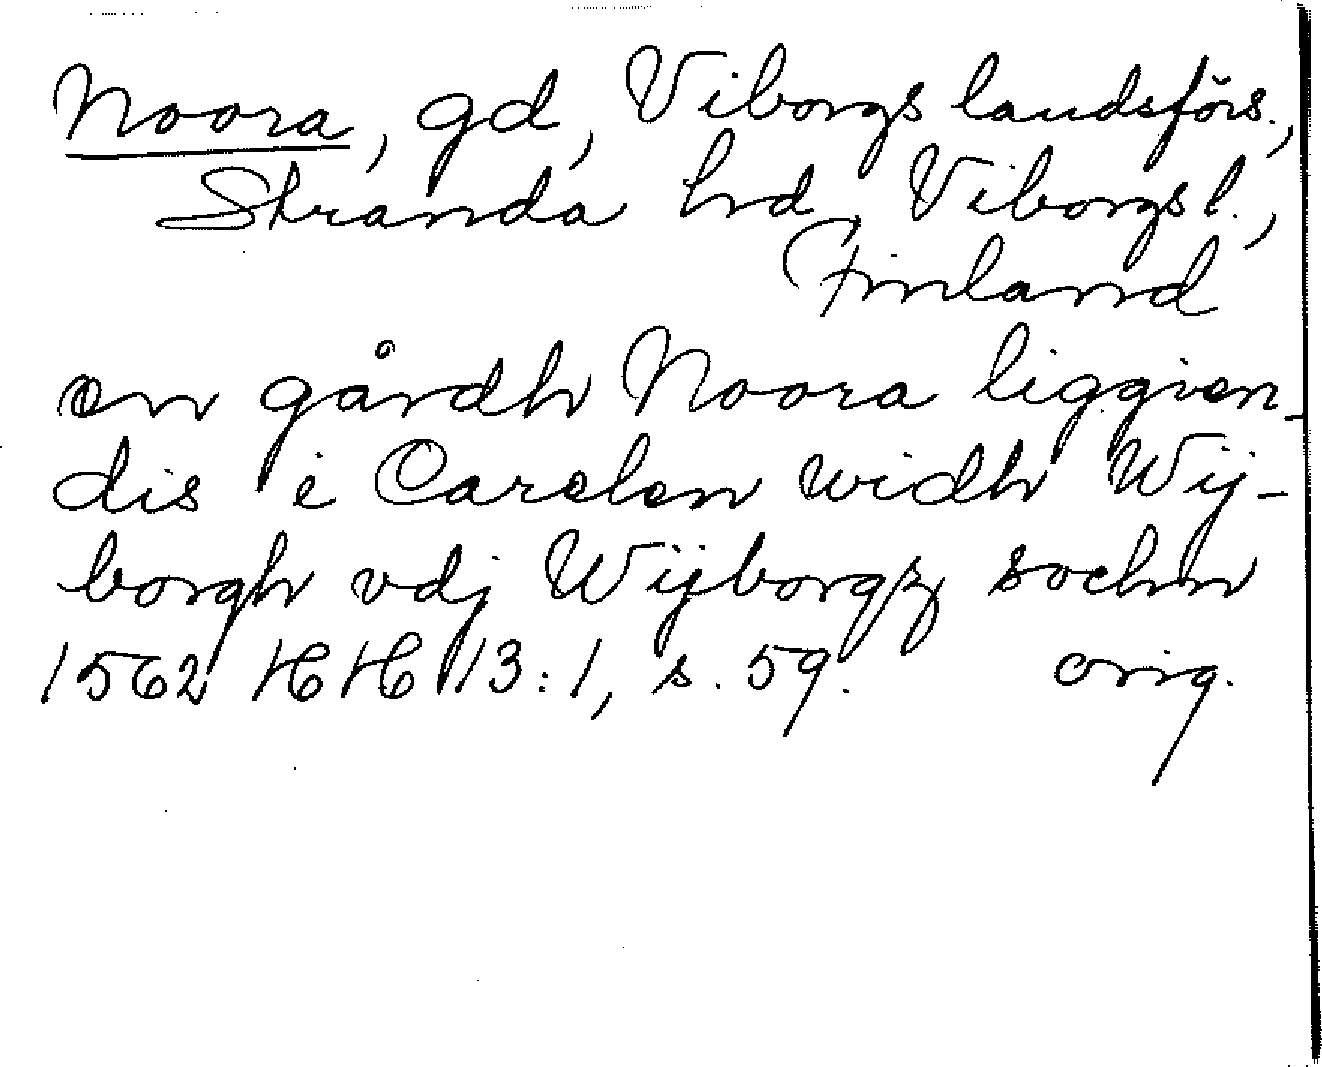 Noora, gd, Viborgs landsförs.,
Stranda hrd, Viborgs l.,
Finland
en gårdh Noora liggien-
dis i Carelen widh Wij-
borgh vdj Wijborgz sochn
1562 HH 13:1, s. 59. orig.